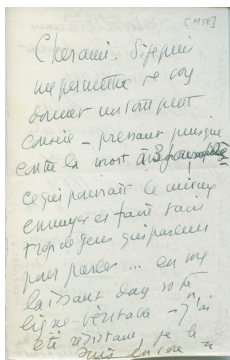 [1958]
Cher ami. Si je puis
me permettre de vous
donner un tout petit
conseil - pressant puisque
entre la mort
ce qui pourrait le mieux
ennuyer et faire taire
trop de gens qui parlent
pour parler ... en vous
laissant dans votre
ligne véritable - j'ai
été résistant je le
suis encore